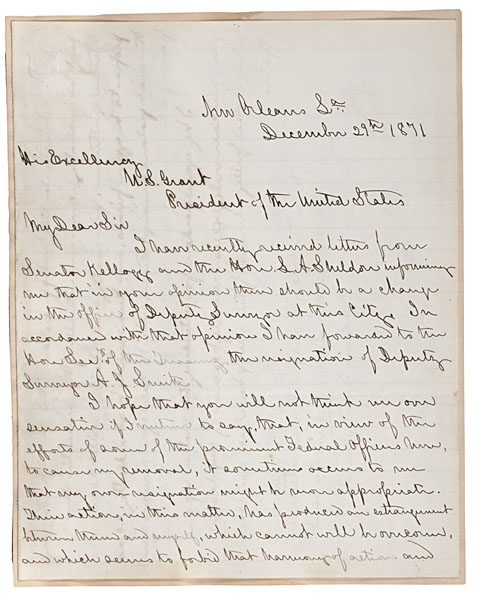 New Orleans La.
December 29th 1871
His Excellency
U.S. Grant
President of the United States
My Dear Sir
I have recently received letters from
Senator Kellogg and the Hon. L.A. Sheldon informing
me that in your opinion there should be a change
in the office of Deputy Surveyor at this City. In
accordance with that opinion I have forwarded to the
Hon. Secy. of the Treasury, the resignation of Deputy
Surveyor A. J. Smith.
I hope that you will not think me over
sensative if I venture to say, that, in view of the
efforts of some of the prominent Federal Officers here,
to cause my removal, it sometimes occurs to me
that my own resignation might be more appropriate.
Their action, in this matter, has produced an estrangement
between them and myself, which cannot well be overcome,
and which seems to forbid that harmony of action and